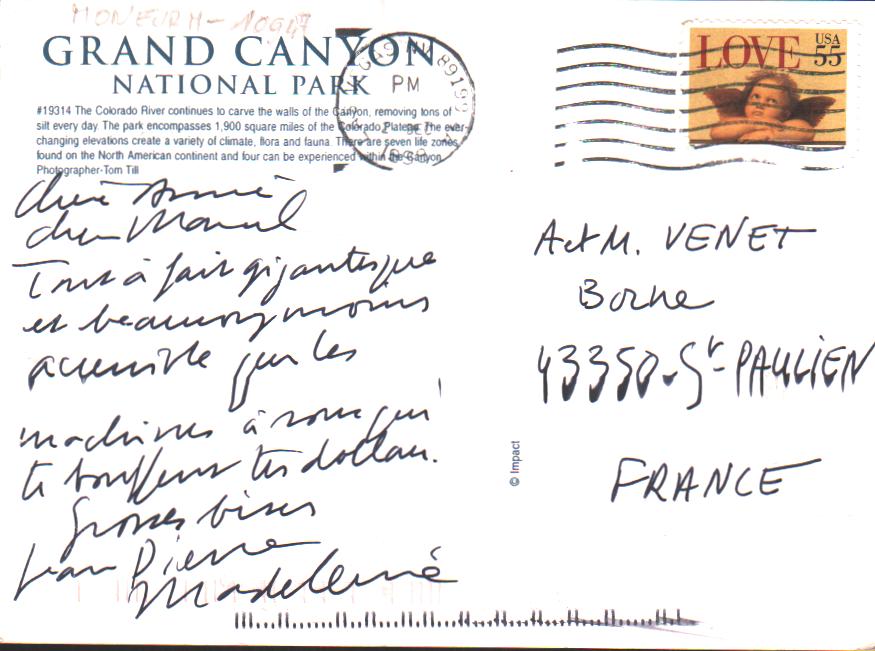 GRAND CANYON
NATIONAL PARK
#19314 The Colorado River continues to carve the walls of the Canyon, removing tons of
silt every day. The park encompasses 1,900 square miles of the Colorado Plateau. The ever-
changing elevations create a variety of climate, flora and fauna. There are seven life zones
found on the North American continent and four can be experienced within the Canyon.
Photographer-Tom Till
PM
NV 89199
LOVE USA
55
chère Annie
cher Marcel
Tout à fait gigantesque
et beaucoup moins
accessible que les
machines à sous qui
te bouffent tes dollars.
Grosses bises
Jean Pierre
Madeleine
A et M. VENET
Borne
43350 - St PAULIEN
FRANCE
© Impact